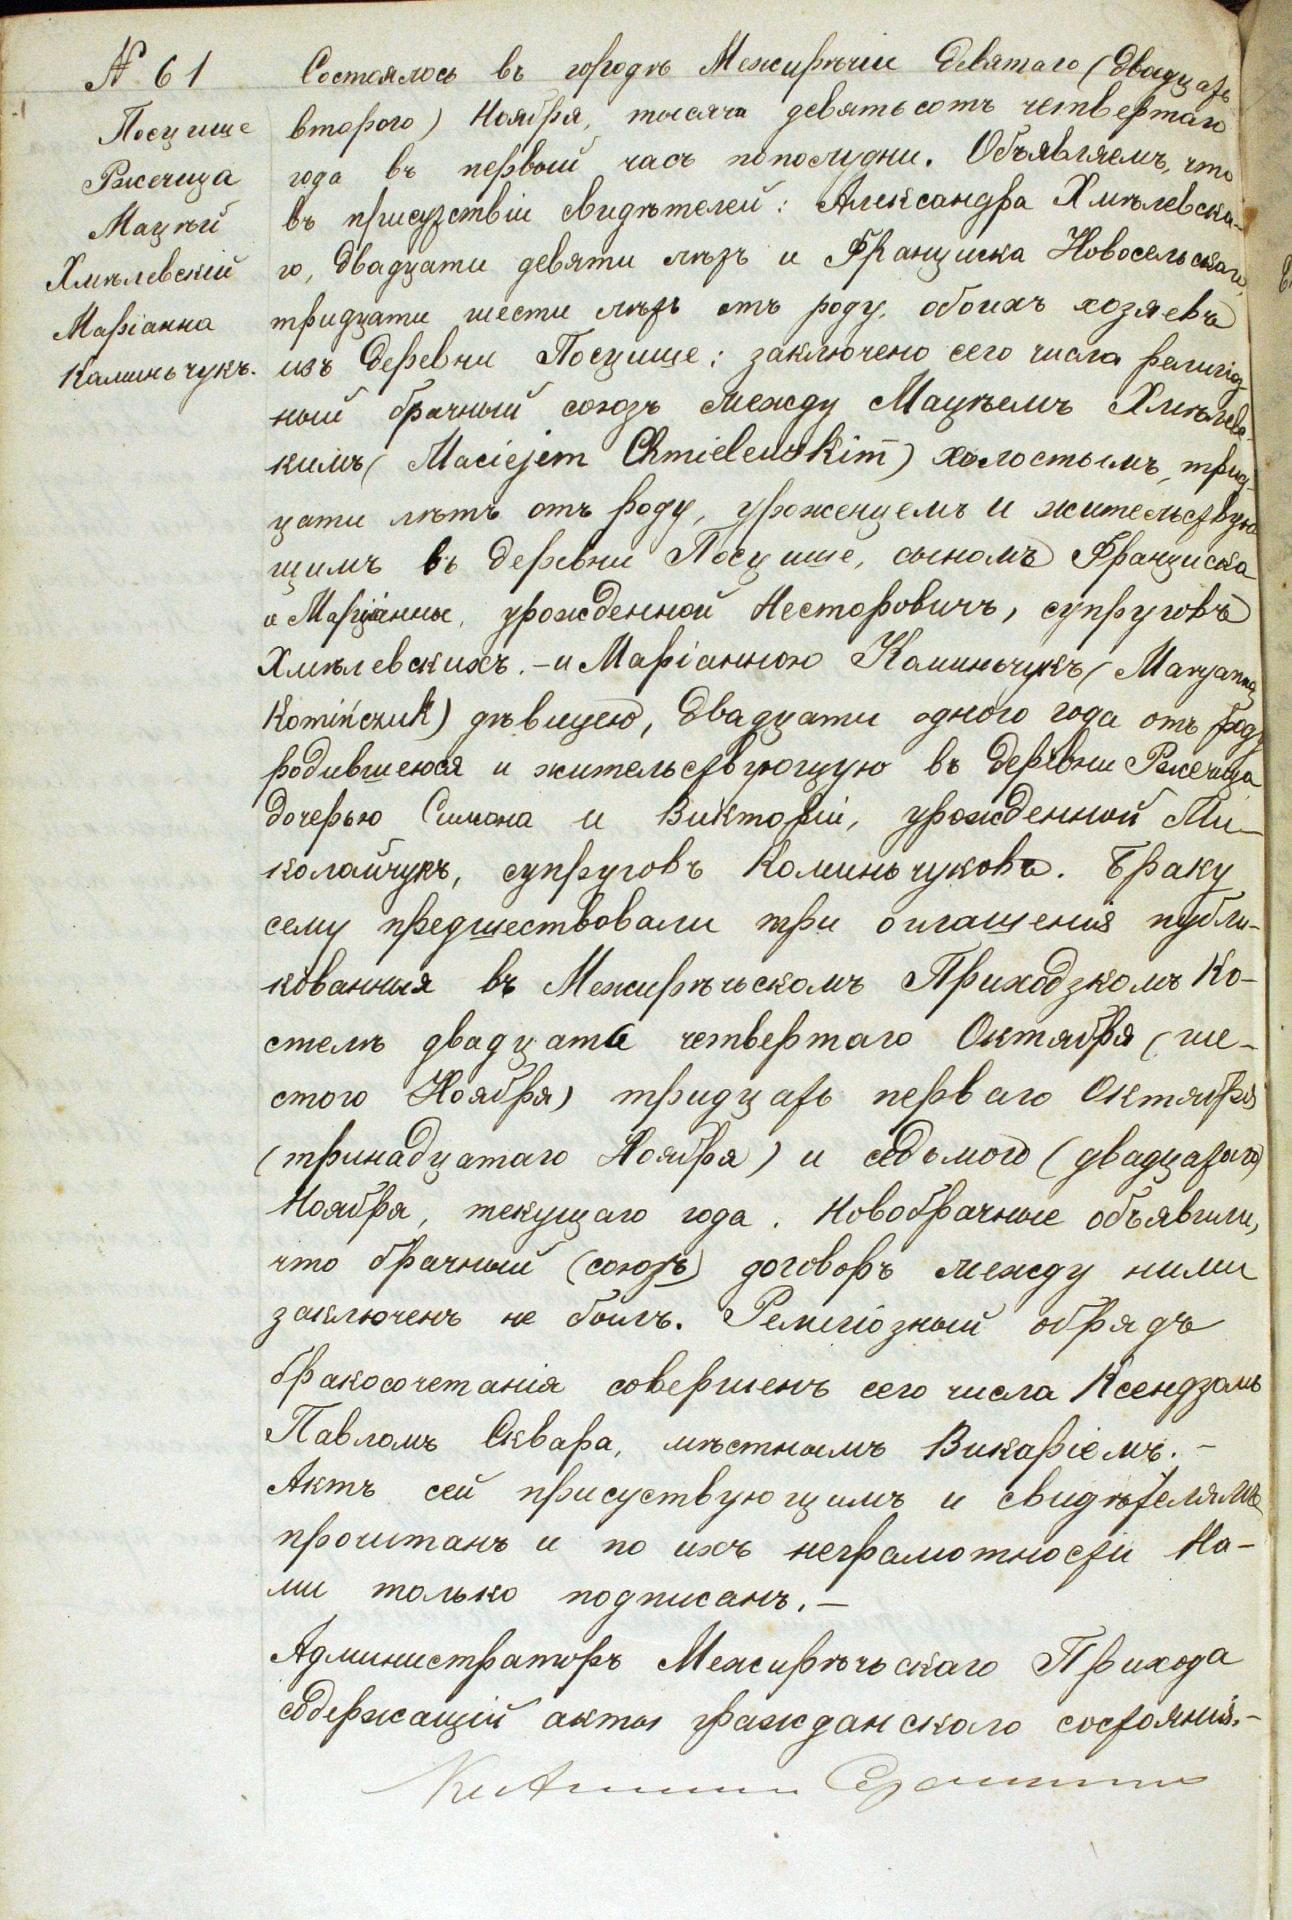 № 61
Посцише
Ржечица
Мацѣй
Хмѣлевскій
Маріанна
Коминьчукъ.
Состоялось въ городѣ Межирѣчіи девятаго (двадцать
второго) Ноября, тысяча девятьсотъ четвертаго
года въ первый часъ пополудни. Объявляемъ, что
въ присутствіи свидѣтелей: Александра Хмѣлевска-
го, двадцати девяти лѣтъ и Франциска Новосельскаго,
тридцати шести лѣтъ отъ роду, обоихъ хозяевъ
изъ деревни Посцише; заключено сего числа религіоз-
ный брачный союзъ между Мацѣемъ Хмѣлевс-
кимъ (Maciejem Chmielewskim) холостымъ, трид-
цати лѣтъ отъ роду, уроженцемъ и жительствую
щимъ въ деревни Посцише, сыномъ Франциска
и Маріанны, урожденной Несторовичъ, супруговъ
Хмѣлевскихъ. – и Маріанною Коминьчукъ (Maryanną
Komińczuk) дѣвицею, двадцати одного года отъ роду
родившеюся и жительствующую въ деревни Ржечица
дочерью Симона и Викторіи, урожденной Ми-
колайчукъ, супруговъ Коминьчуковъ. Браку
сему предшествовали три оглашенія публи-
кованныя въ Межирѣчьскомъ Приходзкомъ Ко-
стелѣ двадцать четвертаго Октября (ше-
стого Ноября) тридцать перваго Октября
(тринадцатаго Ноября) и седьмого (двадцатаго)
Ноября, текущаго года. Новобрачные объявили,
что брачный (союзъ) договоръ между ними
заключенъ не былъ. Религіозный обрядъ
бракосочетанія совершенъ сего числа Ксендзомъ
Павломъ Сквара, мѣстнымъ Викаріемъ. –
Актъ сей присуствующимъ и свидѣтелямъ
прочитанъ и по ихъ неграмотности На-
ми только подписанъ. –
Администраторъ Межирѣчьскаго Прихода
содержащій акты гражданского состоянія. –